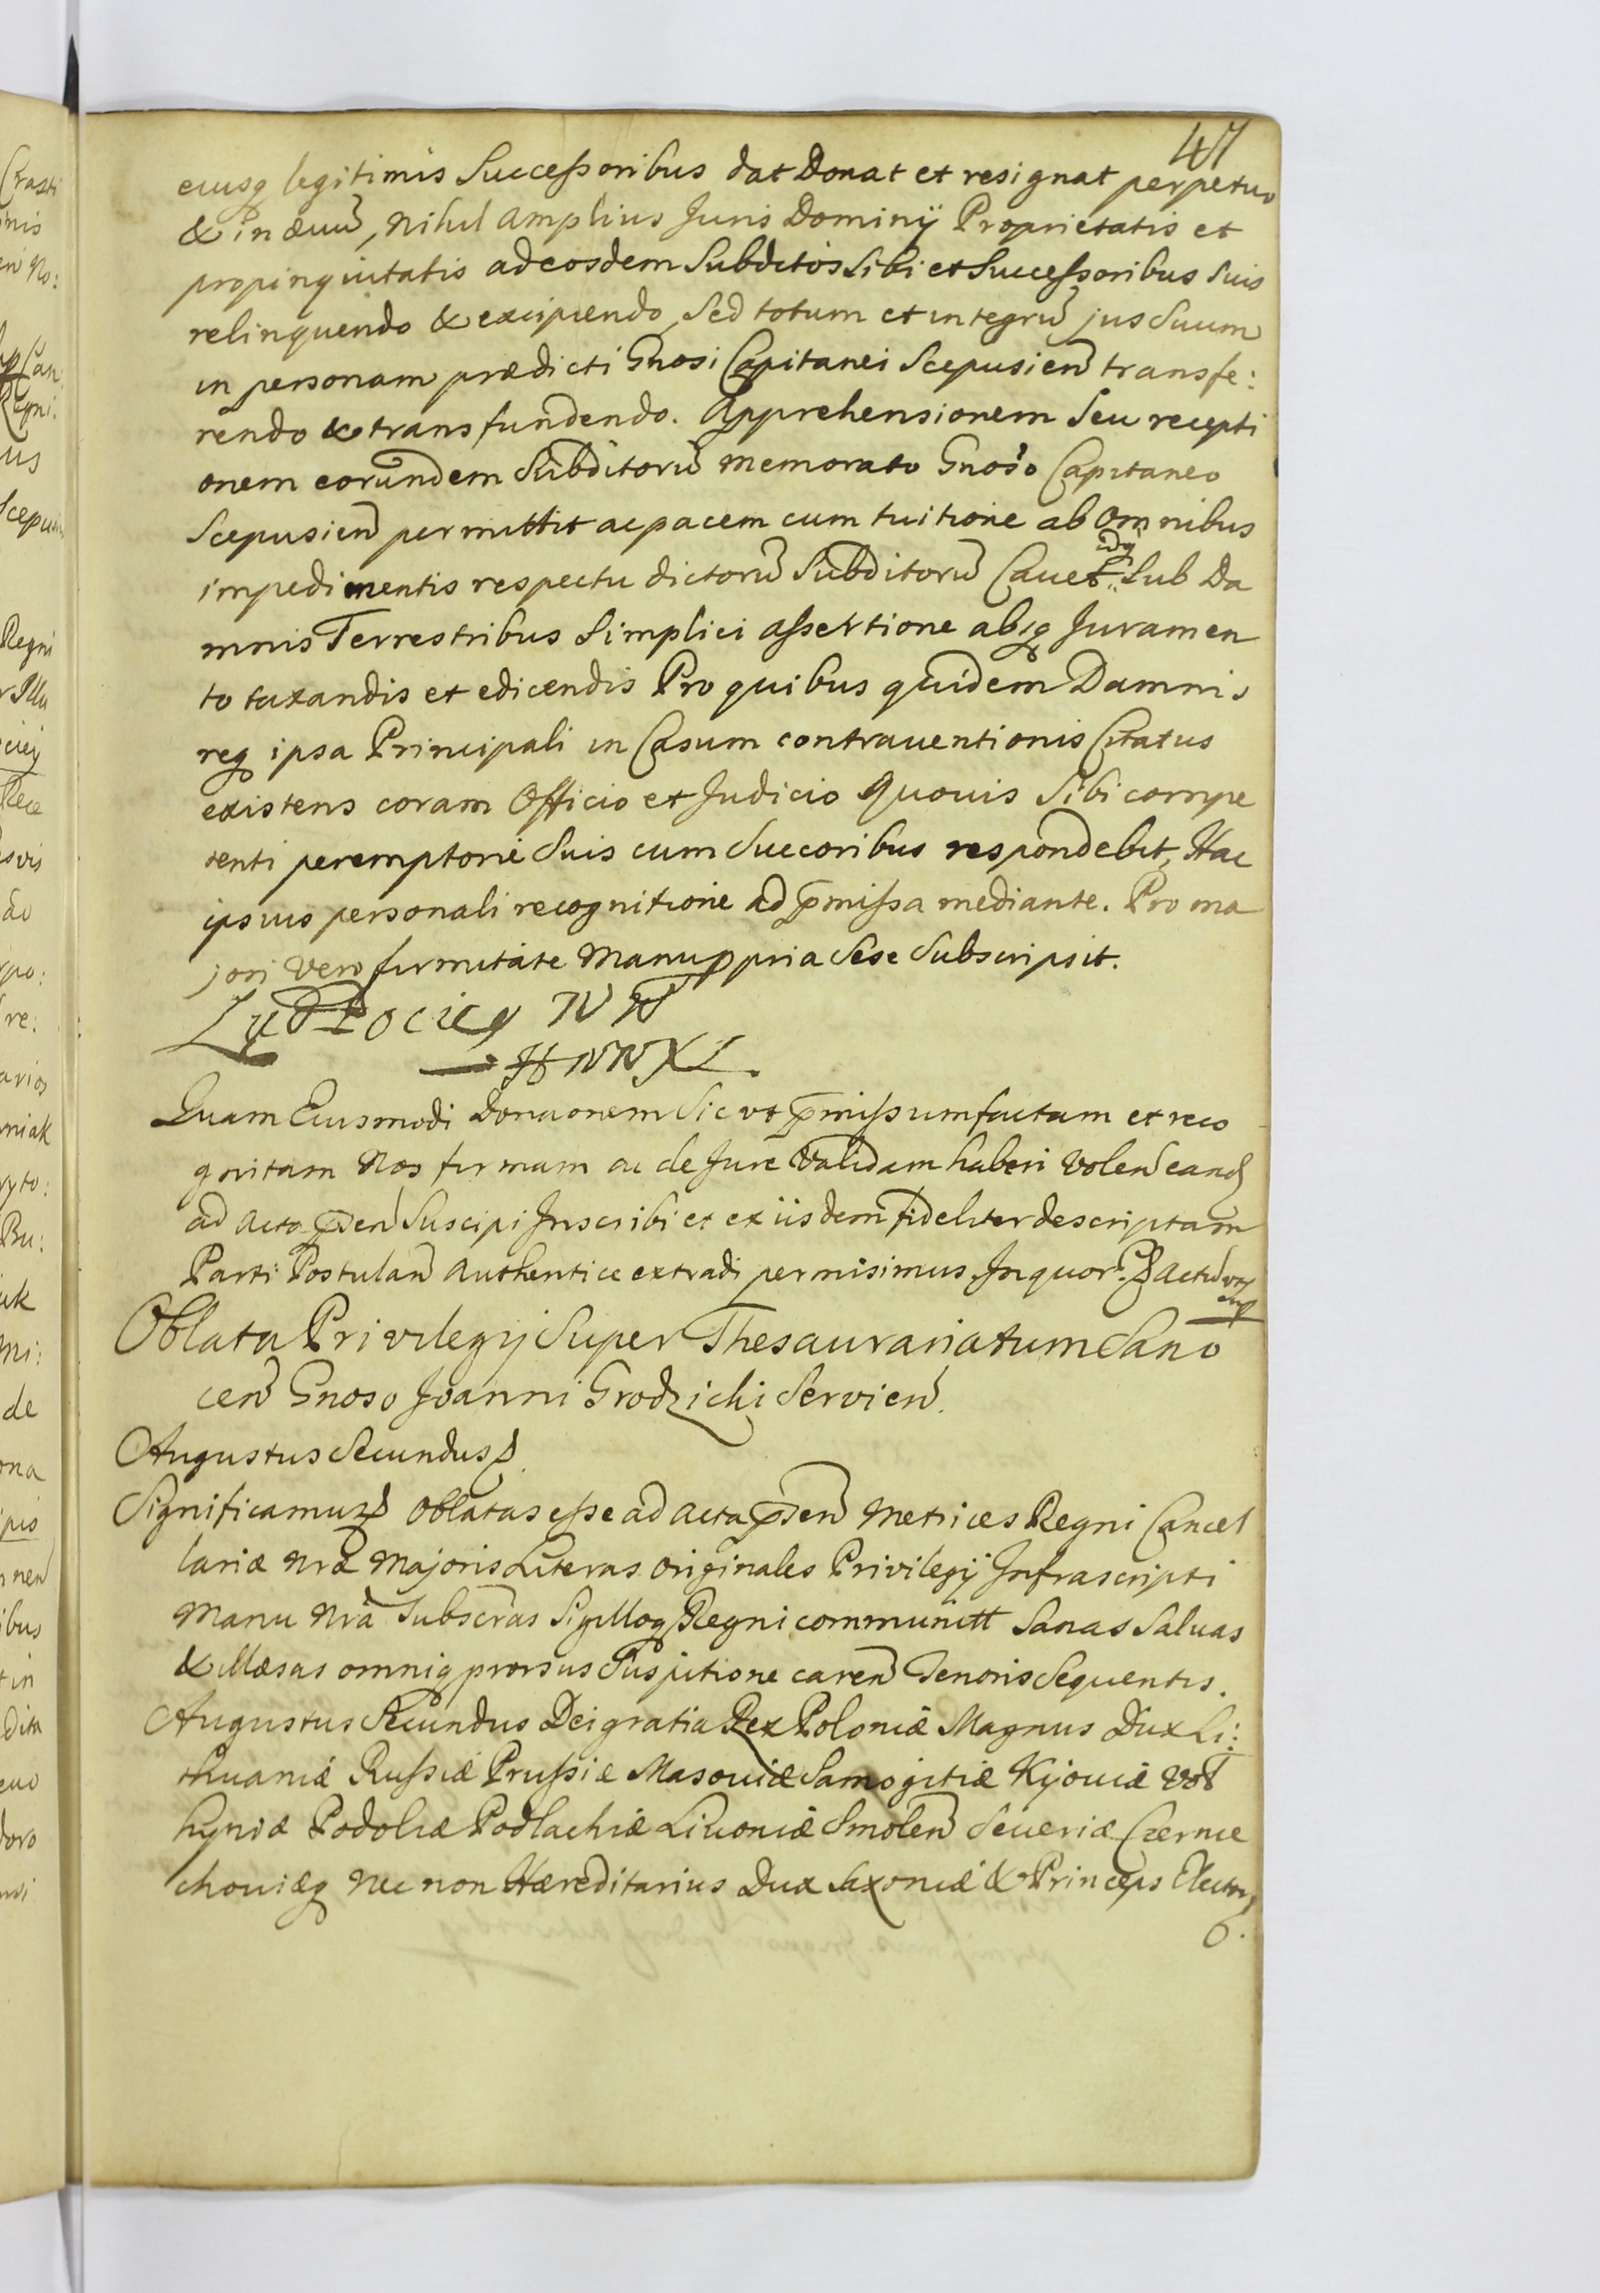 47
eiusq legitimis Successoribus dat Donat et resignat perpetuo
& in ævũ, Nihil Amplius Juris Dominÿ Proprietatis et
propinquitatis ad eosdem Subditos Sibi et Successoribus Suis
relinquendo & excipiendo, Sed totum et integrũ jus Suum
in personam prædicti Gnosi Capitanei Scepusien̄ transfe:
rendo & transfundendo. Apprehensionem Seu recepti
onem eorundem Subditorũ memorato Gnoso Capitaneo
Scepusien̄ permittit ac pacem cum tuitione ab Omnibus
impedimentis respectu dictorũ Subditorũ Cauet idq Sub Da
mnis Terrestribus Simplici assertione absq Juramen
to taxandis et edicendis Pro quibus quidem Damnis
req ipsa Principali in Casum contrauentionis Citatus
existens coram Officio et Judicio quouis Sibi compe
tenti peremptorie Suis cum Succoribus respondebit, Hac
ipsius personali recognitione ad p̄missa mediante. Pro ma
jori Vero firmitate Manu ppria Sese Subscripsit.
Lud Pociey W W
H W W X L.
Quam Eiusmodi Donaonem Sic ut p̄missum factam et reco
gnitam Nos firmam ac de Jure Validam haberi Volen̄ eand
ad Acta p̄sen̄ Suscipi Inscribi et ex iisdem fideliter descriptam
Parti Postulan̄ Authentice extradi permisimus. In quor
Oblata Privilegij Super Thesaurariatum Sano
cen̄ Gnoso Joanni Grodzicki Servien̄.
Augustus Secundus
Significamus Oblatas esse ad Acta p̄sen̄ Metrices Regni Cancel
lariæ Nræ Majoris Literas originales Privilegij Infrascripti
Manu Nrã Subscras Sigilloq Regni communitt Sanas Saluas
& illæsas omniq prorsus Suspitione caren̄ Tenoris Sequentis.
Augustus Secundus Dei gratia Rex Poloniæ Magnus Dux Li:
thuaniæ Russiæ Prussiæ Masouiæ Samogitiæ Kijouiæ Vol
hyniæ Podoliæ Podlachiæ Liuoniæ Smolen̄ Seueriæ Czernie
chouiæq Nec non Hæreditarius Dux Saxoniæ & Princeps Elector